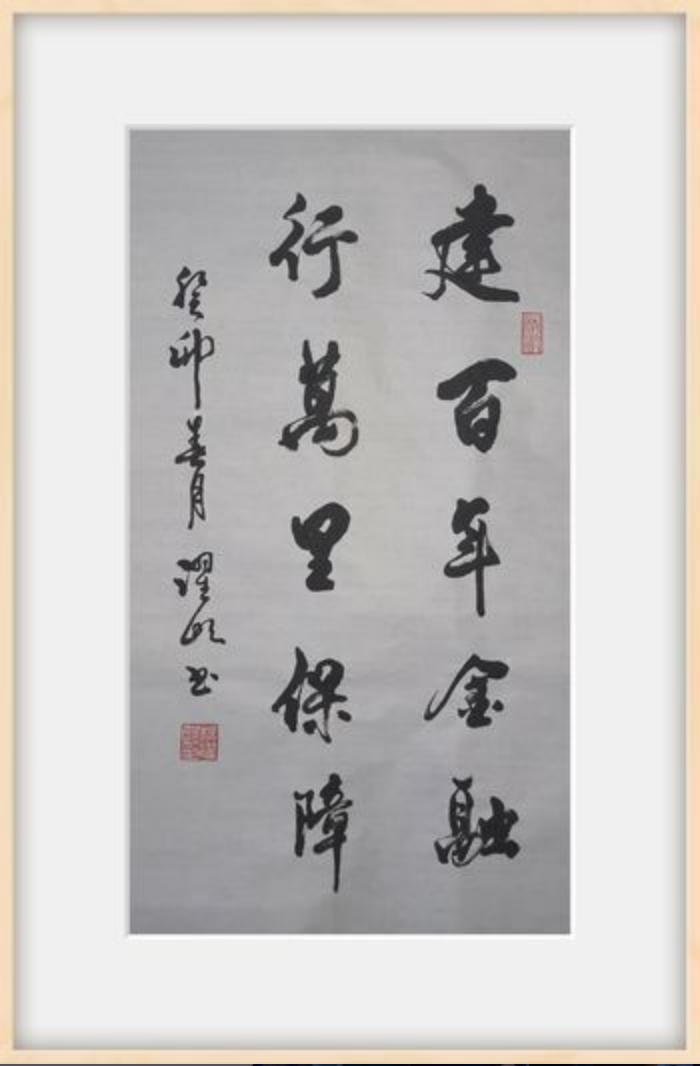 建百年金融
行萬里保障
癸卯春月 書